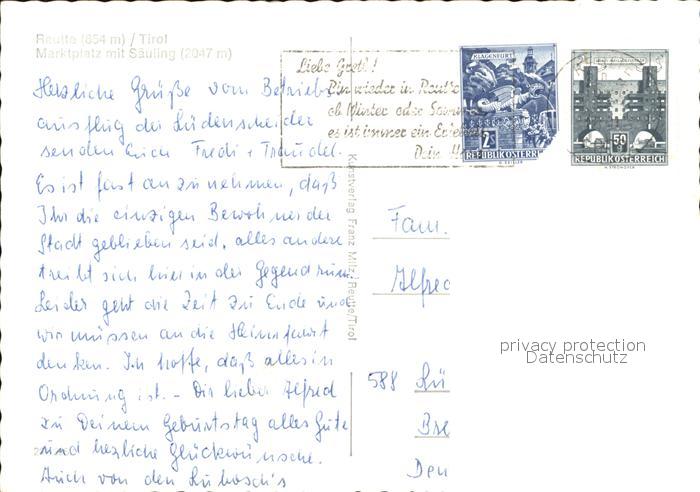 Reutte (854 m) / Tirol
Marktplatz mit Säuling (2047 m)
Herzliche Grüße vom Betriebs
ausflug der Lüdenscheider
senden Euch Fredi + Traudel.
Es ist fast anzunehmen, daß
Ihr die einzigen Bewohner der
Stadt geblieben seid, alles andere
treibt sich hier in der Gegend rum.
Leider geht die Zeit zu Ende und
wir müssen an die Heimfahrt
denken. Ich hoffe, daß alles in
Ordnung ist. - Dir lieber Alfred
zu Deinem Geburtstag alles Gute
und herzliche Glückwünsche.
Auch von den
Kunstverlag Franz Milz, Reutte/Tirol
Liebe Gretl!
Bin wieder in Reutte
ob Winter oder Som
es ist immer ein Erle
Dein
KLAGENFURT
2S
REPUBLIK ÖSTERR
50 g
REPUBLIK ÖSTERREICH
Fam.
Alfred
588 Lü
Bre
Den
privacy protection
Datenschutz